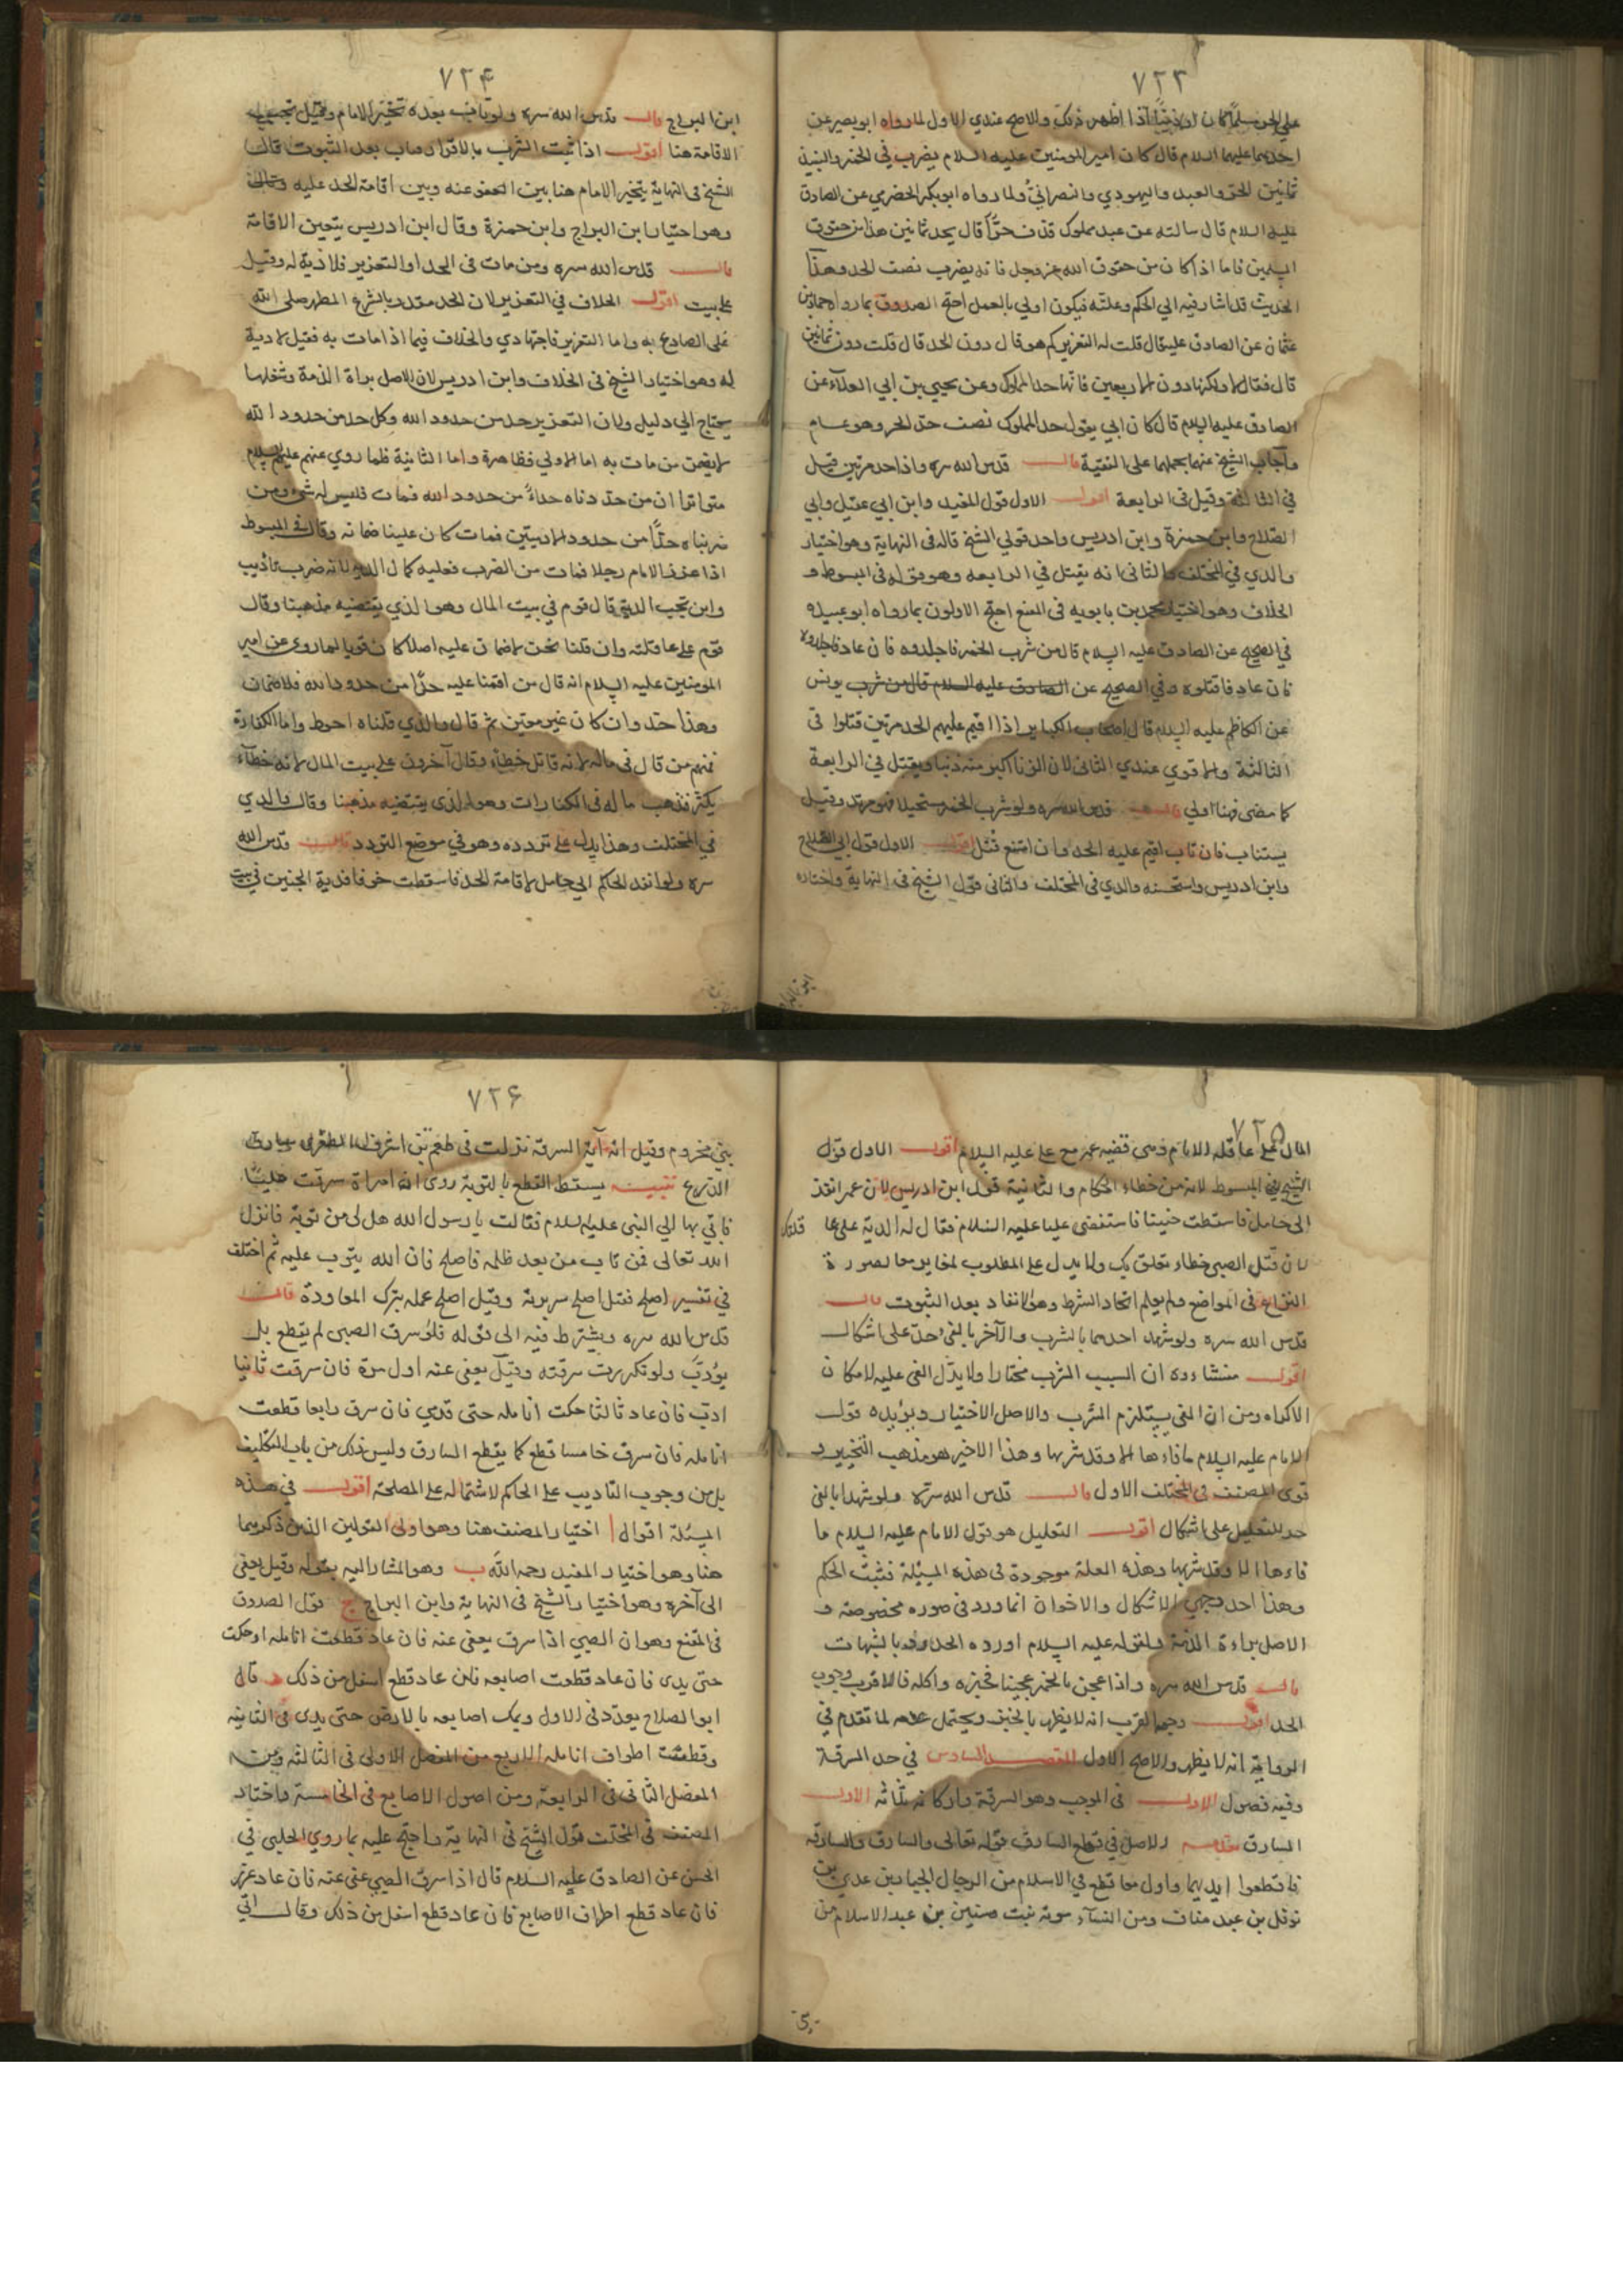 ٧٢٣
على الحر مسلما كان او ذميا اذا اظهر ذلك والاصح عندي الاول لما رواه ابو بصير عن
احدهما عليهما السلام قال كان امير المومنين عليه السلام يضرب في الخمر والنبيذ
ثمانين الحر والعبد واليهودي والنصراني ولما رواه ابو بكر الحضرمي عن الصادق
عليه السلام قال سالته عن عبد مملوك قذف حرا قال يحد ثمانين هذا من حقوق
المسلمين فاما اذا كان من حقوق الله عز وجل فانه يضرب نصف الحد وهذا
الحديث قد اشار فيه الي الحكم وعلته فيكون اولي بالعمل احتج الصدوق بما رواه حماد بن
عثمان عن الصادق عليه قال قلت له التعزير كم هو قال دون الحد قال قلت دون ثمانين
قال فقال لا ولكنها دون الاربعين فانها حد المملوك وعن يحيي بن ابي العلاء عن
الصادق عليه السلام قال كان ابي يقول حد المملوك نصف حد الحر وهو عام
واجاب الشيخ عنهما بحملهما على التقية قال قدس الله سره واذا حد مرتين قتل
في الثالثة وقيل في الرابعة اقول الاول قول المفيد وابن ابي عقيل وابي
الصلاح وابن حمزة وابن ادريس واحد قولي الشيخ قاله في النهاية وهو اختيار
والدي في المختلف والثاني انه يقتل في الرابعه وهو قوله في المبسوط و
الخلاف وهو اختيار محمد بن بابويه في المقنع احتج الاولون بما رواه ابو عبيده
في الصحيح عن الصادق عليه السلام قال من شرب الخمر فاجلدوه فان عاد فاجلدوه
فان عاد فاقتلوه وفي الصحيح عن الصادق عليه السلام قال من شرب يونس
عن الكاظم عليه السلام قال اصحاب الكباير اذا اقيم عليهم الحد مرتين قتلوا في
الثالثة والاقوي عندي الثاني لان الزنا اكبر منه ذنبا ويقتل في الرابعة
كما مضى فهنا اولي قال قدس الله سره ولو شرب الخمر مستحيلا فهو مرتد وقيل
يستتاب فان تاب اقيم عليه الحد وان امتنع قتل اقول الاول قول ابي الصلاح
وابن ادريس واستحسنه والدي في المختلف والثاني قول الشيخ في النهاية واختاره
٧٢۴
ابن البراج قال قدس الله سره ولو تاب بعده تخير الامام وقيل تجب
الاقامة هنا اقول اذا ثبت الشرب بالاقرار وتاب بعد الثبوت قال
الشيخ في النهاية يتخير الامام هنا بين العفو عنه وبين اقامة الحد عليه
وهو اختيار ابن البراج وابن حمزة وقال ابن ادريس يتعين الاقامة
قال قدس الله سره ومن مات في الحد او التعزير فلا دية له وقيل
على بيت اقول الخلاف في التعزير لان الحد مقدر بالشرع المطهر صلى الله
على الصادع به واما التعزير فاجتهادي والخلاف فيما اذا مات به فقيل لا دية
له وهو اختيار الشيخ في الخلاف وابن ادريس لان الاصل براة الذمة وشغلها
يحتاج الي دليل ولان التعزير حد من حدود الله وكل حد من حدود الله
لا يضمن من مات به اما الاولي فظاهرة واما الثانية فلما روي عنهم عليهم السلام
متواترا ان من حددناه حداً من حدود الله فمات فليس له شيء ومن
ضربناه حدًا من حدود الادميين فمات كان علينا ضمانه وقال في المبسوط
اذا عزر الامام رجلا فمات من الضرب فعليه كمال الدية لانه ضرب تاديب
واين تجب الدية قال قوم في بيت المال وهو الذي يقتضيه مذهبنا وقال
قوم على عاقلته وان قلنا نحن لا ضمان عليه اصلا كان قويا لما روي عن امير
المومنين عليه السلام انه قال من اقمنا عليه حدا من حدود الله فلا ضمان
وهذا حد وان كان غير معين ثم قال والذي قلناه احوط واما الكفارة
فمنهم من قال في ماله لانه قاتل خطاء وقال آخرون على بيت المال لانه خطاء
يكثر فذهب ماله في الكفارات وهو الذي يقتضيه مذهبنا وقال والدي
في المختلف وهذا يدل على تردده وهو في موضع التردد قال قدس الله
سره ولو انفذ الحاكم الي حامل لاقامة الحد فاسقطت خوفا فدية الجنين في بيت
٧٢۵
المال على عاقلة الامام وهي قضيه عمر مع على عليه السلام اقول الاول قول
الشيخ في المبسوط لانه من خطاء الحكام والثانية قول ابن ادريس لان عمر انفذ
الى حامل فاسقطت جنينا فاستفتى عليا عليه السلام فقال له الدية على عا قلتك
لان قتل الصبي خطاء تعلق بك ولا يدل على المطلوب لمغايرتها لصورة
النزاع في المواضع ولم يعلم اتحاد الشرط وهو الانفاد بعد الثبوت قال
قدس الله سره ولو شهد احدهما بالشرب والآخر بالقي حد على اشكال
اقول منشاءه ان السبب الشرب مختارا ولا يدل القي عليه لامكان
الاكراه ومن ان القي يستلزم الشرب والاصل الاختيار ويؤيده قول
الامام عليه السلام ما قاءها الا وقد شربها وهذا الاخير هو مذهب الشيخين و
قوى المصنف في المختلف الاول قال قدس الله سره ولو شهدا بالقي
حد للتعليل على اشكال اقول التعليل هو قول الامام عليه السلام ما
قاءها الا وقد شربها وهذه العلة موجودة في هذه المسئلة فثبت الحكم
وهذا احد وجهي الاشكال والاخر ان انما ورد في صوره مخصوصة و
الاصل براءة الذمة ولقوله عليه السلام ادرءوا الحدود بالشبهات
قال قدس الله سره واذا عجن بالخمر عجينا فخبزه واكله فالاقرب وجوب
الحد اقول وجه القرب انه لا يطهر بالخبز ويحتمل عدمه لما تقدم في
الرواية انه لا يطهر والاصح الاول المقصد السادس في حد السرقة
وفيه فصول الاول في الموجب وهو السرقة واركانه ثلاثه الاول
السارق مقدمه الاصل في قطع السارق قوله تعالى والسارق والسارقه
فاقطعوا ايديهما واول من قطع في الاسلام من الرجال الخيار بن عدي بن
نوفل بن عبد مناف ومن النساء مرة بنت سفين بن عبد الاسلام من
٧٢۶
بني مخزوم وقيل ان آية السرقة نزلت في طعمة بن ابيرق الظفري سارق
الدرع تنبيه يسقط القطع بالتوبة روى ان امراة سرقت حليا
فاتي بها الي النبي عليه السلام فقالت يا رسول الله هل لى من توبة فانزل
الله تعالى فمن تاب من بعد ظلمه فاصلح فان الله يتوب عليه ثم اختلف
في تفسير اصلح فقيل اصلح سريرته وقيل اصلح عمله بترك المعاودة قال
قدس الله سره ويشترط فيه الى قوله فلو سرق الصبي لم يقطع بل
يؤدب ولو تكررت سرقته وقيل يعفى عنه اول مرة فان سرقت ثانيا
ادب فان عاد ثالثا حكت انامله حتى تدمي فان سرق رابعا قطعت
انامله فان سرق خامسا قطع كما يقطع السارق وليس ذلك من باب التكليف
بل من وجوب التاديب على الحاكم لاشتماله على المصلحة اقول في هذه
المسئلة اقوال ا اختيار المصنف هنا وهو اولى القولين الذين ذكرهما
هنا وهو اختيار المفيد رحمه الله ب وهو المشار اليه بقوله وقيل يعفى
الى آخره وهو اختيار الشيخ في النهاية وابن البراج ج قول الصدوق
في المقنع وهو ان الصبي اذا سرق يعفى عنه فان عاد قطعت انامله او حكت
حتى يدمى فان عاد قطعت اصابعه فان عاد قطع اسفل من ذلك د قال
ابو الصلاح يهدد في الاول ويحك اصابعه بالارض حتى يدمى في الثانيه
وقطعت اطراف انامله الاربع من المفصل الاولى في الثالثه ومن
المفصل الثاني في الرابعة ومن اصول الاصابع في الخامسة واختار
المصنف في المختلف قول الشيخ في النهاية واحتج عليه بما روي الحلبي في
الحسن عن الصادق عليه السلام قال اذا سرق الصبي عفى عنه فان عاد عزر
فان عاد قطع اطراف الاصابع فان عاد قطع اسفل من ذلك وقال اتي